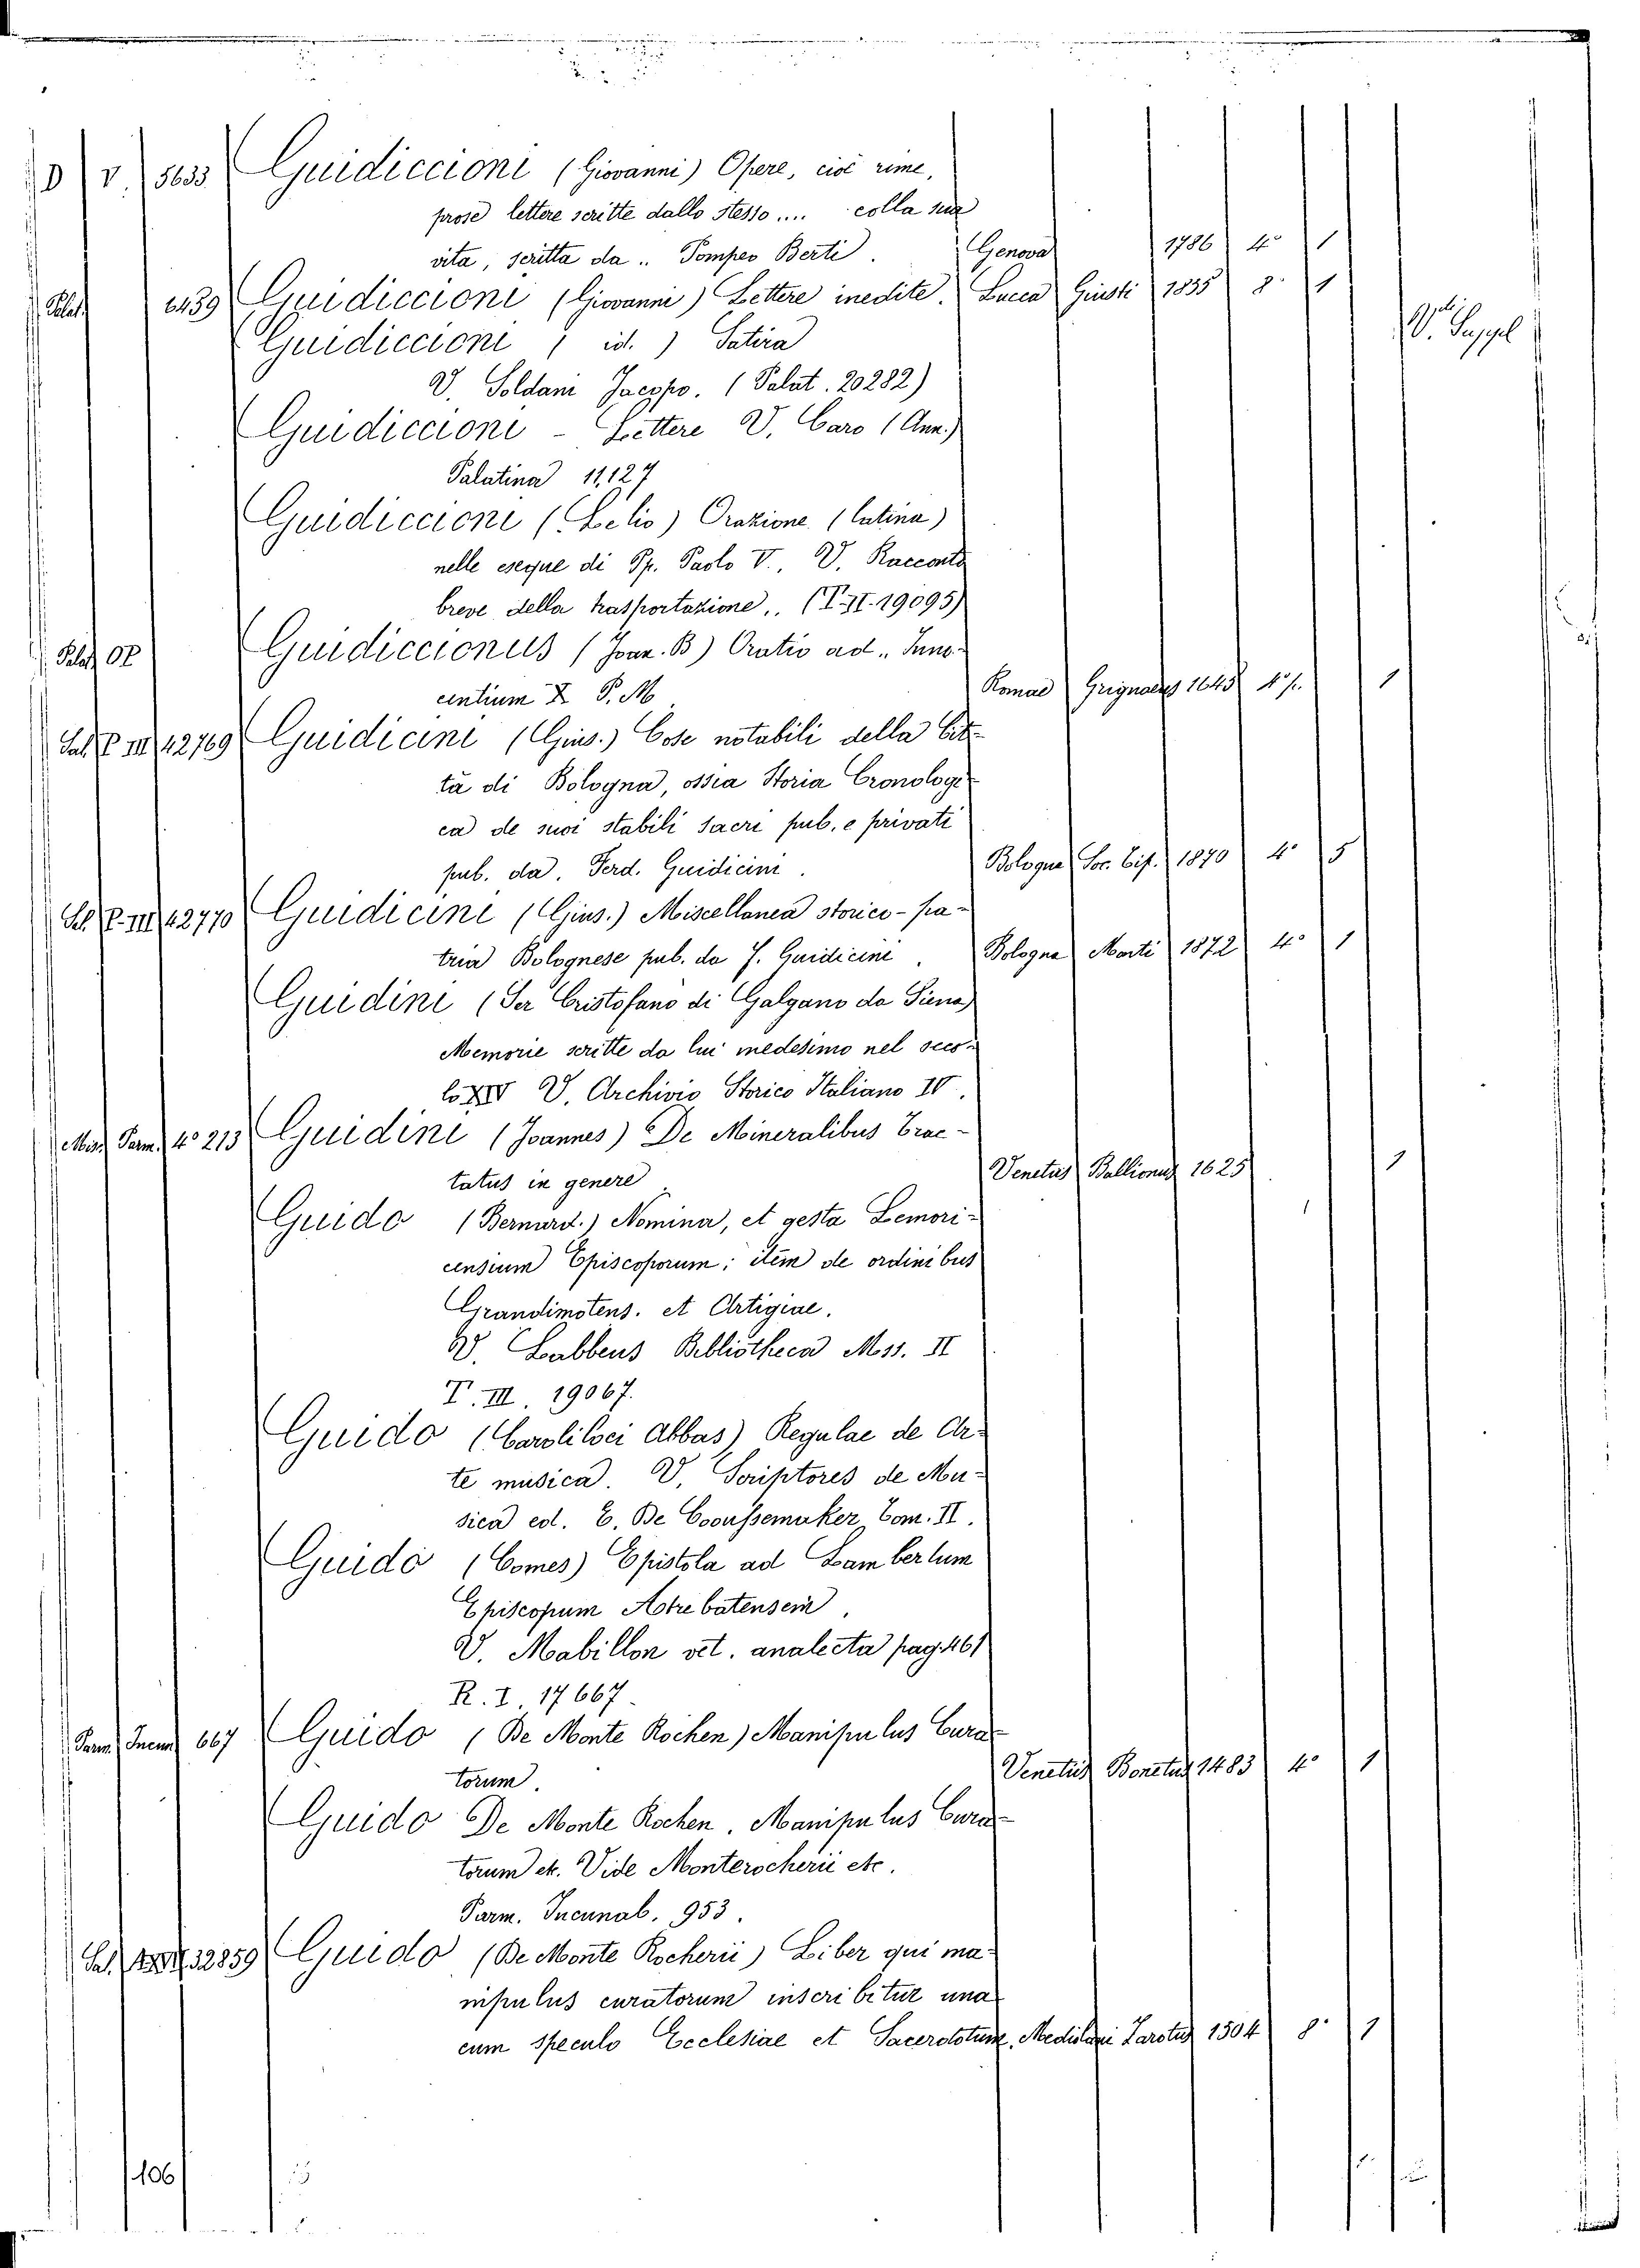 D V 5633 Guidiccioni (Giovanni) Opere, cioè rime,
prose lettere scritte dallo stesso.... colla sua
vita, scritta da .. Pompeo Berti. Genova 1786 4° 1
Palat. 6439 Guidiccioni (Giovanni) Lettere inedite. Lucca Giusti 1835 8° 1
V. Suppl
Guidiccioni ( id. ) Satira
V. Soldani Jacopo. (Palat. 20282)
Guidiccioni - Lettere V. Caro (Ann.)
Palatina 11,127
Guidiccioni (Lelio) Orazione (latina)
nelle eseque di Pp. Paolo V., V. Racconto
breve della trasportazione,. (T. II. 19095)
Palat OP Guidiccionus (Joan. B) Oratio ad .. Inno-
centium X P. M. Romae Grignanus 1645 4° p. 1
Sal. P. III 42769 Guidicini (Gius.) Cose notabili della Cit-
tà di Bologna, ossia Storia Cronologi-
ca de suoi stabili sacri pub. e privati
pub. da. Ferd. Guidicini. Bologna Soc. Tip. 1870 4° 5
Sal. P. III 42770 Guidicini (Gius.) Miscellanea storico-pa-
tria Bolognese pub. da F. Guidicini. Bologna Monti 1872 4° 1
Guidini (Ser Cristofano di Galgano da Siena)
Memorie scritte da lui medesimo nel seco-
lo XIV V. Archivio Storico Italiano IV.
Misc. Parm. 4° 213 Guidini (Joannes) De Mineralibus Trac-
tatus in genere Venetus Ballionus 1625 1
Guido (Bernard.) Nomina, et gesta Lemori-
censium Episcoporum; item de ordinibus
Grandimotens. et Artigiae.
V. Labbeus Bibliotheca Mss. II
T. III. 19067.
Guido (Caroliloci Abbas) Regulae de Ar-
te musica. V. Scriptores de Mu-
sica ed. E. De Coussemaker Tom. II.
Guido (Comes) Epistola ad Lambertum
Episcopum Atrebatensem.
V. Mabillon vet. analecta pag. 461
R. I. 17667.
Parm. Incun. 667 Guido (De Monte Rochen) Manipulus Cura-
torum. Venetiis Bonetus 1483 4° 1
Guido De Monte Rochen. Manipulus Cura-
torum etc. Vide Monterocherii etc.
Parm. Incunab. 953.
Sal. 32859 Guido (De Monte Rocherii) Liber qui ma-
nipulus curatorum inscribitur una
cum speculo Ecclesiae et Sacerdotum, Mediolani Zarotus 1504 8° 1
106